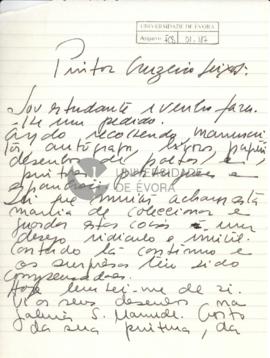 UNIVERSIDADE DE ÉVORA
Arquivo
Pintor Cruzeiro Seixas:
Sou estudante e venho fazer-
-lhe um pedido.
Ando recolhendo manuscri-
tos, autógrafos, livros, papéis
desenhos de poetas e
pintores portugueses e
espanhóis.
Sei que muitos acham esta
mania de coleccionar e
guardar estas coisas um
desejo ridículo e inútil.
Contudo lá continuo e
as surpresas têm sido
compensadoras.
Hoje lembrei-me de si.
Vi os seus desenhos na
Galeria S. Mamede. Gosto
da sua pintura, da
UNIVERSIDADE
DE ÉVORA